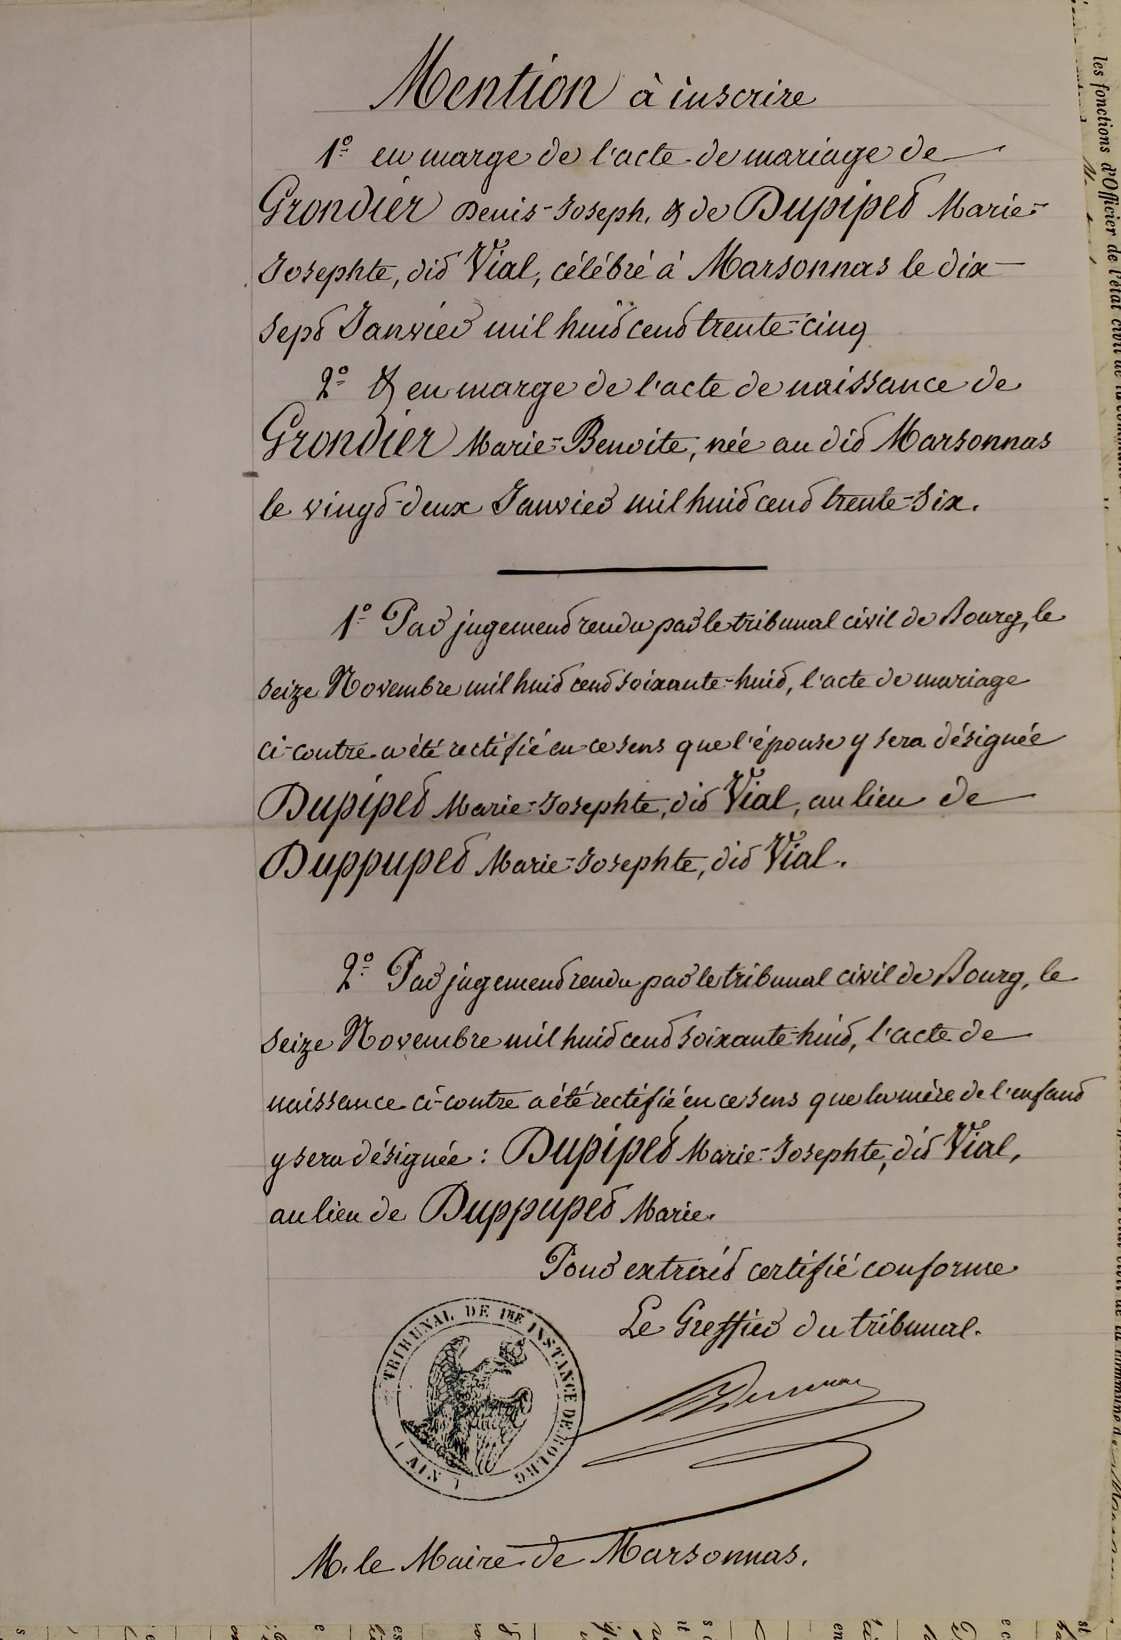 Mention à inscrire
1º en marge de l'acte de mariage de
Grondier Denis-Joseph, & de Dupiped Marie-
Josephte, dit Vial, célébré à Marsonnas le dix
sept Janvier mil huit cent trente-cinq
2º & en marge de l'acte de naissance de
Grondier Marie-Benoite, née au dit Marsonnas
le vingt-deux Janvier mil huit cent trente-six.
1º Par jugement rendu par le tribunal civil de Bourg, le
seize Novembre mil huit cent soixante-huit, l'acte de mariage
ci-contre a été rectifié en ce sens que l'épouse y sera désignée
Dupiped Marie-Josephte, dit Vial, au lieu de
Duppuped Marie-Josephte, dit Vial.
2º Par jugement rendu par le tribunal civil de Bourg, le
seize Novembre mil huit cent soixante-huit, l'acte de
naissance ci-contre a été rectifié en ce sens que la mère de l'enfant
y sera désignée : Dupiped Marie-Josephte, dit Vial,
au lieu de Duppuped Marie.
Pour extrait certifié conforme
Le Greffier du tribunal.
TRIBUNAL DE 1RE INSTANCE DE BOURG
(AIN)
M. le Maire de Marsonnas.
les fonctions d'Officier de l'état civil de la commune